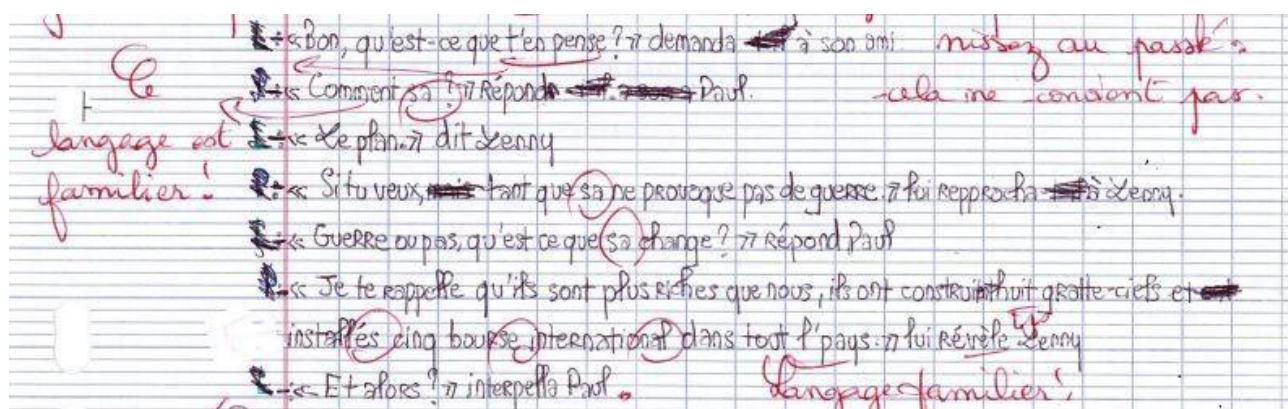 -« Bon, qu'est-ce que t'en pense ? » demanda à son ami. nissez au passé :
-« Comment sa ? » Répond Paul. cela ne convient pas.
langage est -« Le plan. » dit Lenny
familier ! -« Si tu veux, tant que sa ne provoque pas de guerre. » lui repprocha à Lenny.
-« Guerre ou pas, qu'est ce que sa change ? » Répond Paul
-« Je te rappelle qu'ils sont plus riches que nous, ils ont construit huit gratte-ciels et
installés cinq bourse international dans tout l'pays. » lui Révèle Lenny
-« Et alors ? » interpella Paul. Langage familier !